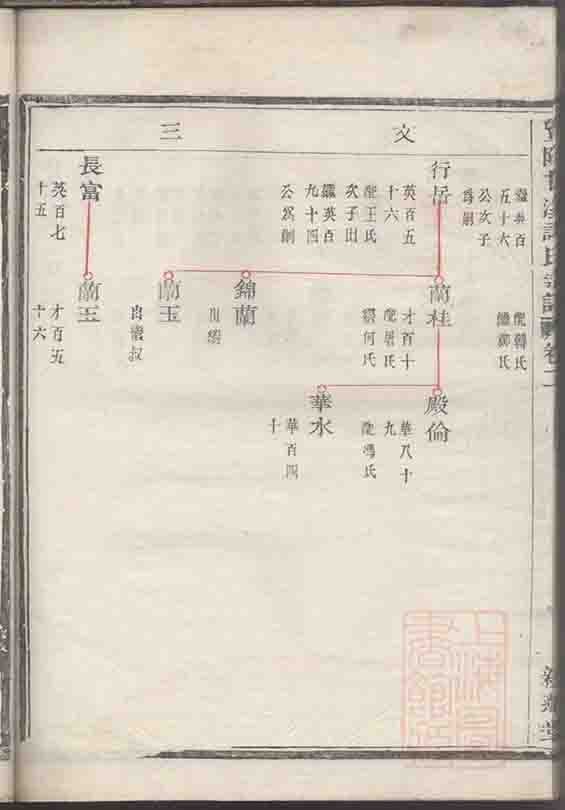 文
三
行岳
英百五
十六
配王氏
次子出
繼英百
九十四
公爲嗣
長富
英百七
十五
公次子
爲嗣
五十六
蘭桂
才百十
配屠氏
繼何氏
錦蘭
出繼
蘭玉
出繼叔
蘭玉
才百五
十六
配韓氏
殿倫
華八十
九
配馮氏
華水
華百四
十